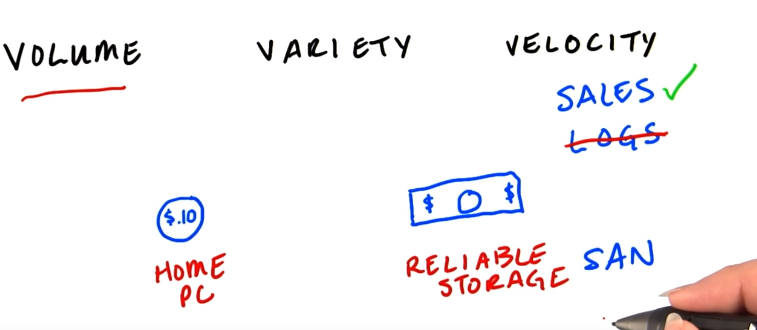 VOLUME VARIETY VELOCITY
SALES
LOGS
$.10
$ $
HOME
PC
RELIABLE
STORAGE
SAN